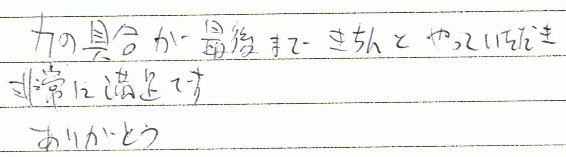 力の具合が最後まできちんとやっていただき
非常に満足です
ありがとう